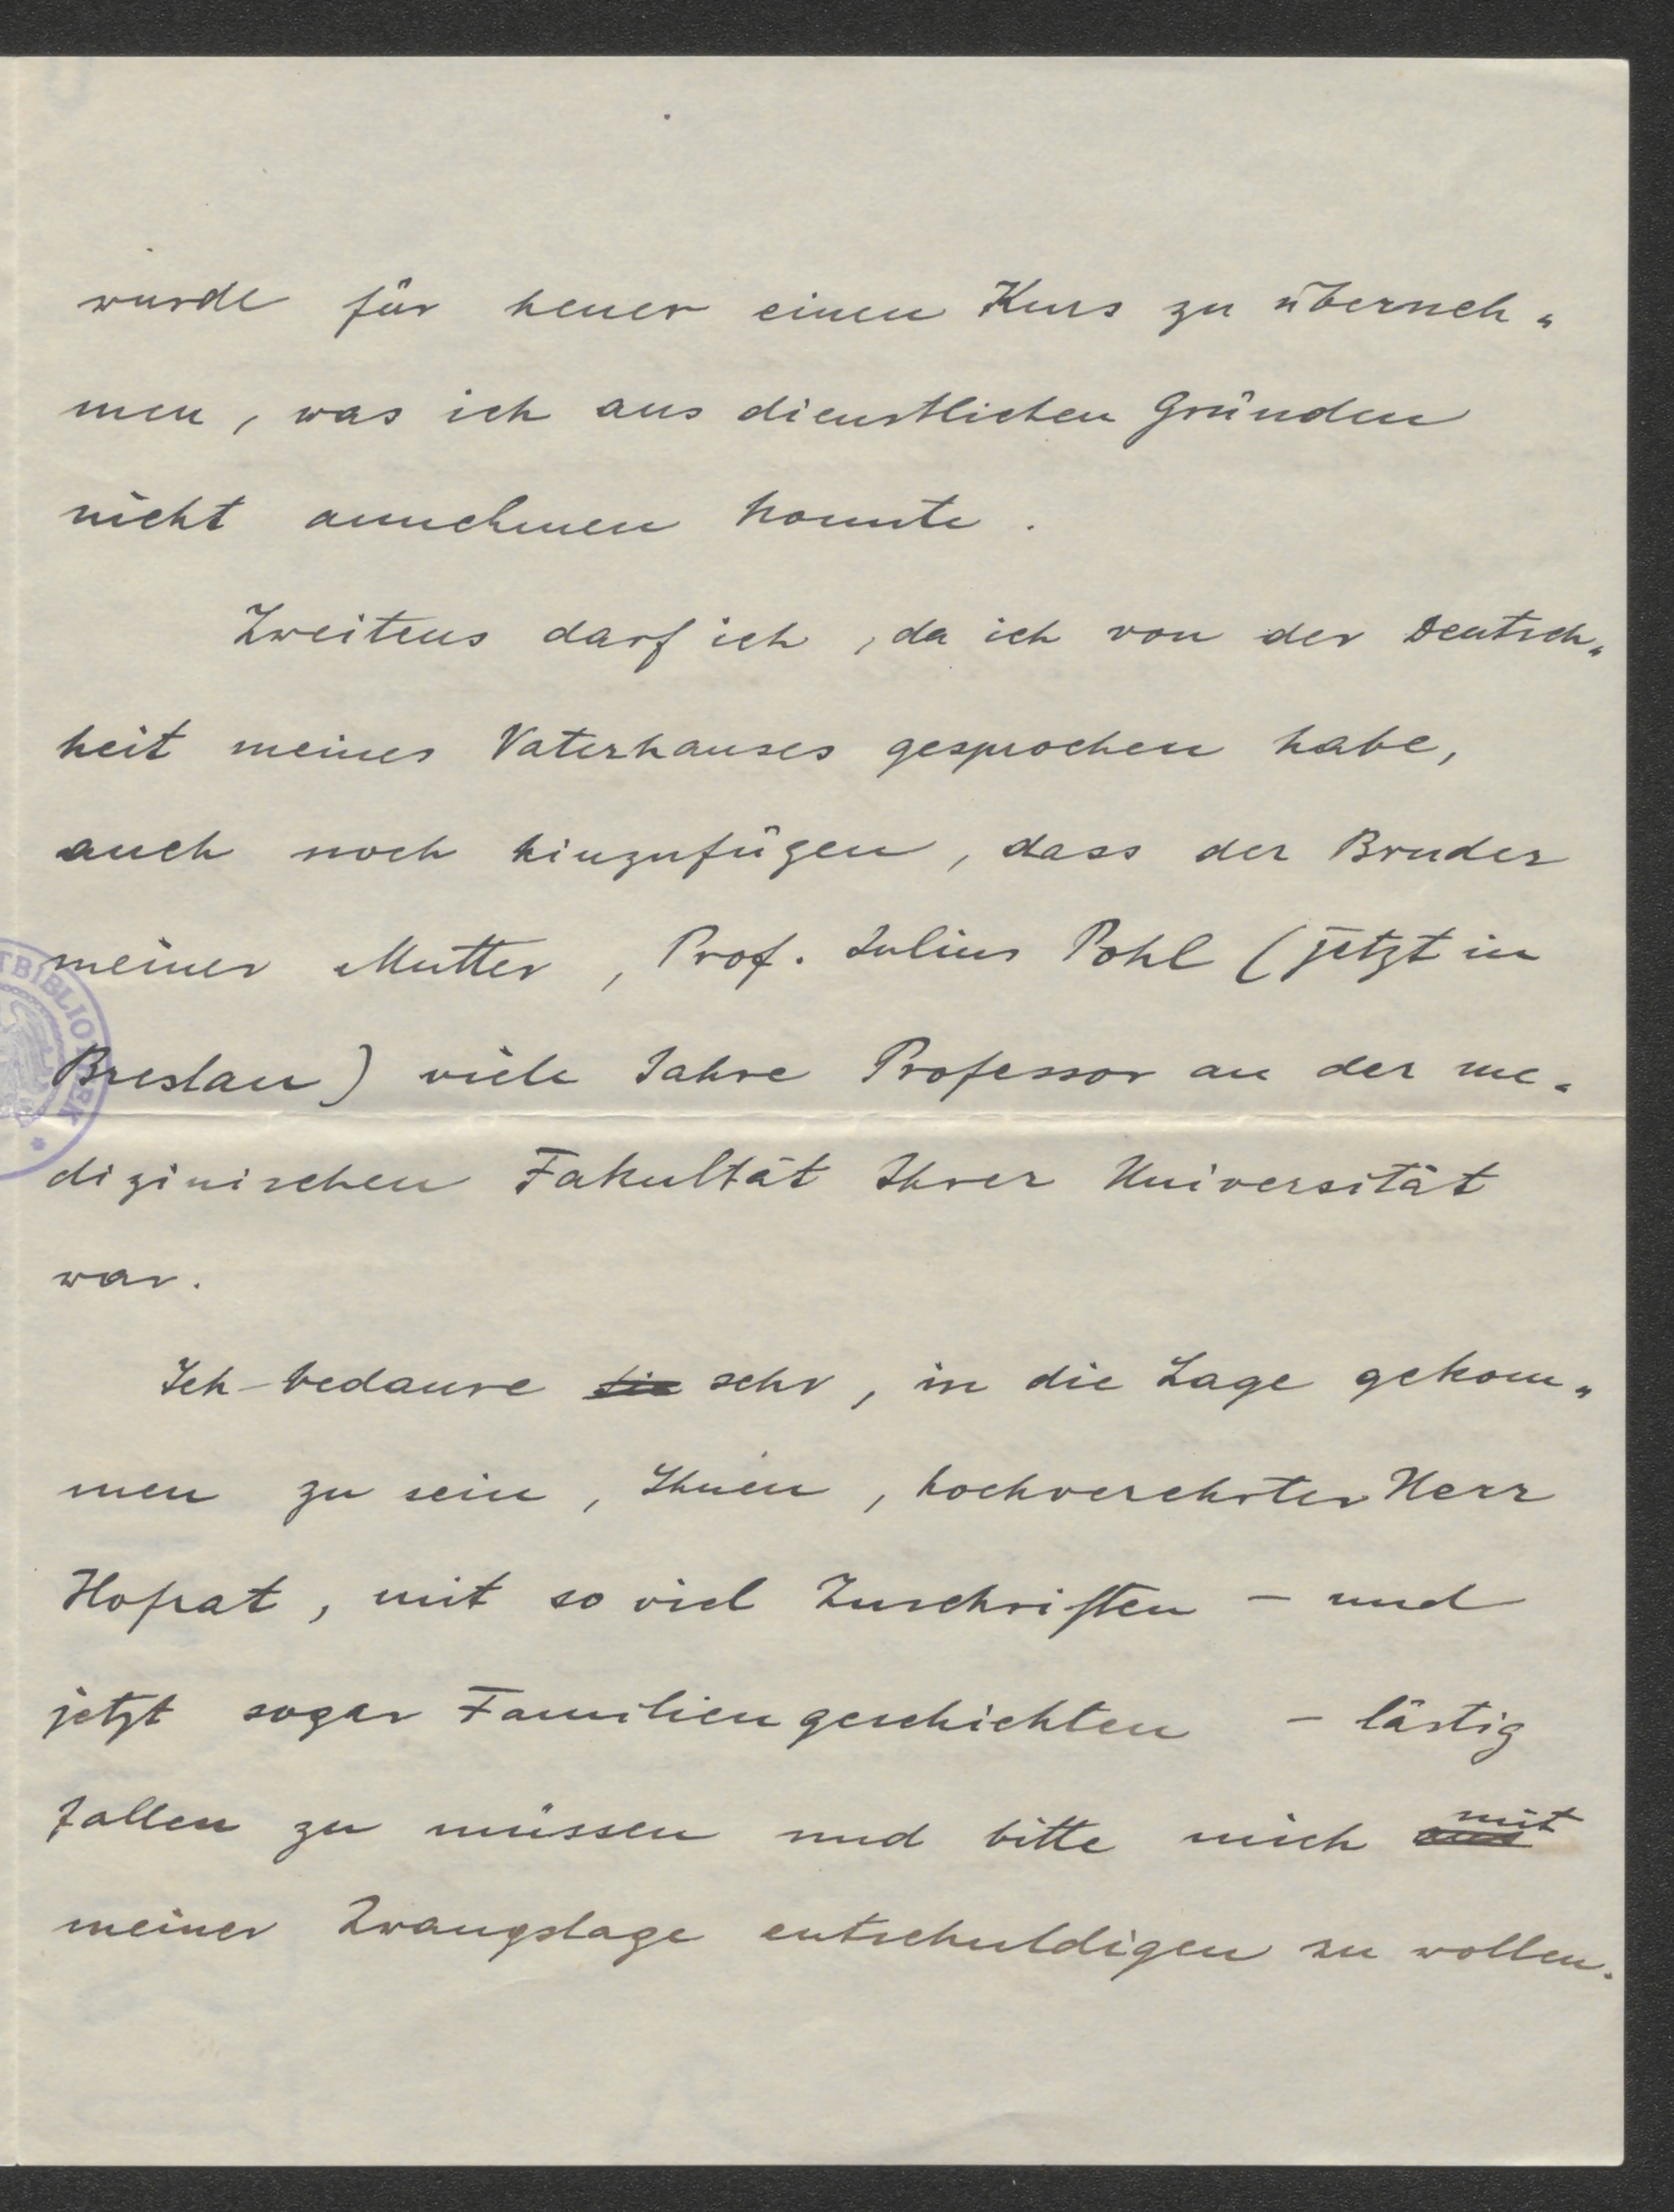 wurde für heuer einen Kurs zu überneh-
men, was ich aus dienstlichen Gründen
nicht annehmen konnte.
Zweitens darf ich, da ich von der Deutsch-
heit meines Vaterhauses gesprochen habe,
auch noch hinzufügen, dass der Bruder
meiner Mutter, Prof. Julius Pohl (jetzt in
Breslau) viele Jahre Professor an der me-
dizinischen Fakultät Ihrer Universität
war.
Ich bedaure sehr, in die Lage gekom-
men zu sein, Ihnen, hochverehrter Herr
Hofrat, mit so viel Zuschriften - und
jetzt sogar Familiengeschichten - lästig
fallen zu müssen und bitte mich mit
meiner Zwangslage entschuldigen zu wollen.